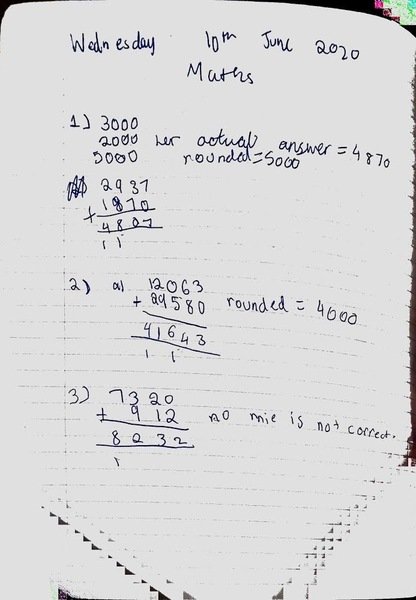 Wednesday 10th June 2020
Maths
1) 3000
2000 her actual answer = 4870
5000 rounded = 5000
2937
+ 1870
4807
1 1
2) a) 12063
+ 29580 rounded = 4000
41643
1 1
3) 7320
+ 912 no mie is not correct.
8232
1